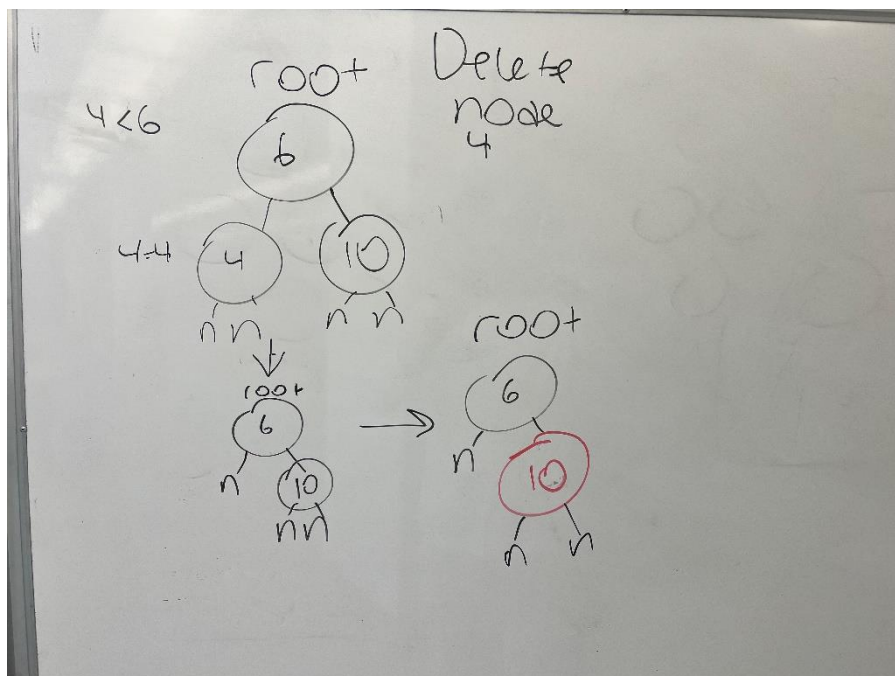 root
Delete
node
4
4<6
6
4=4
4
10
n n
n n
root
6
n
10
n n
root
6
n
10
n
n